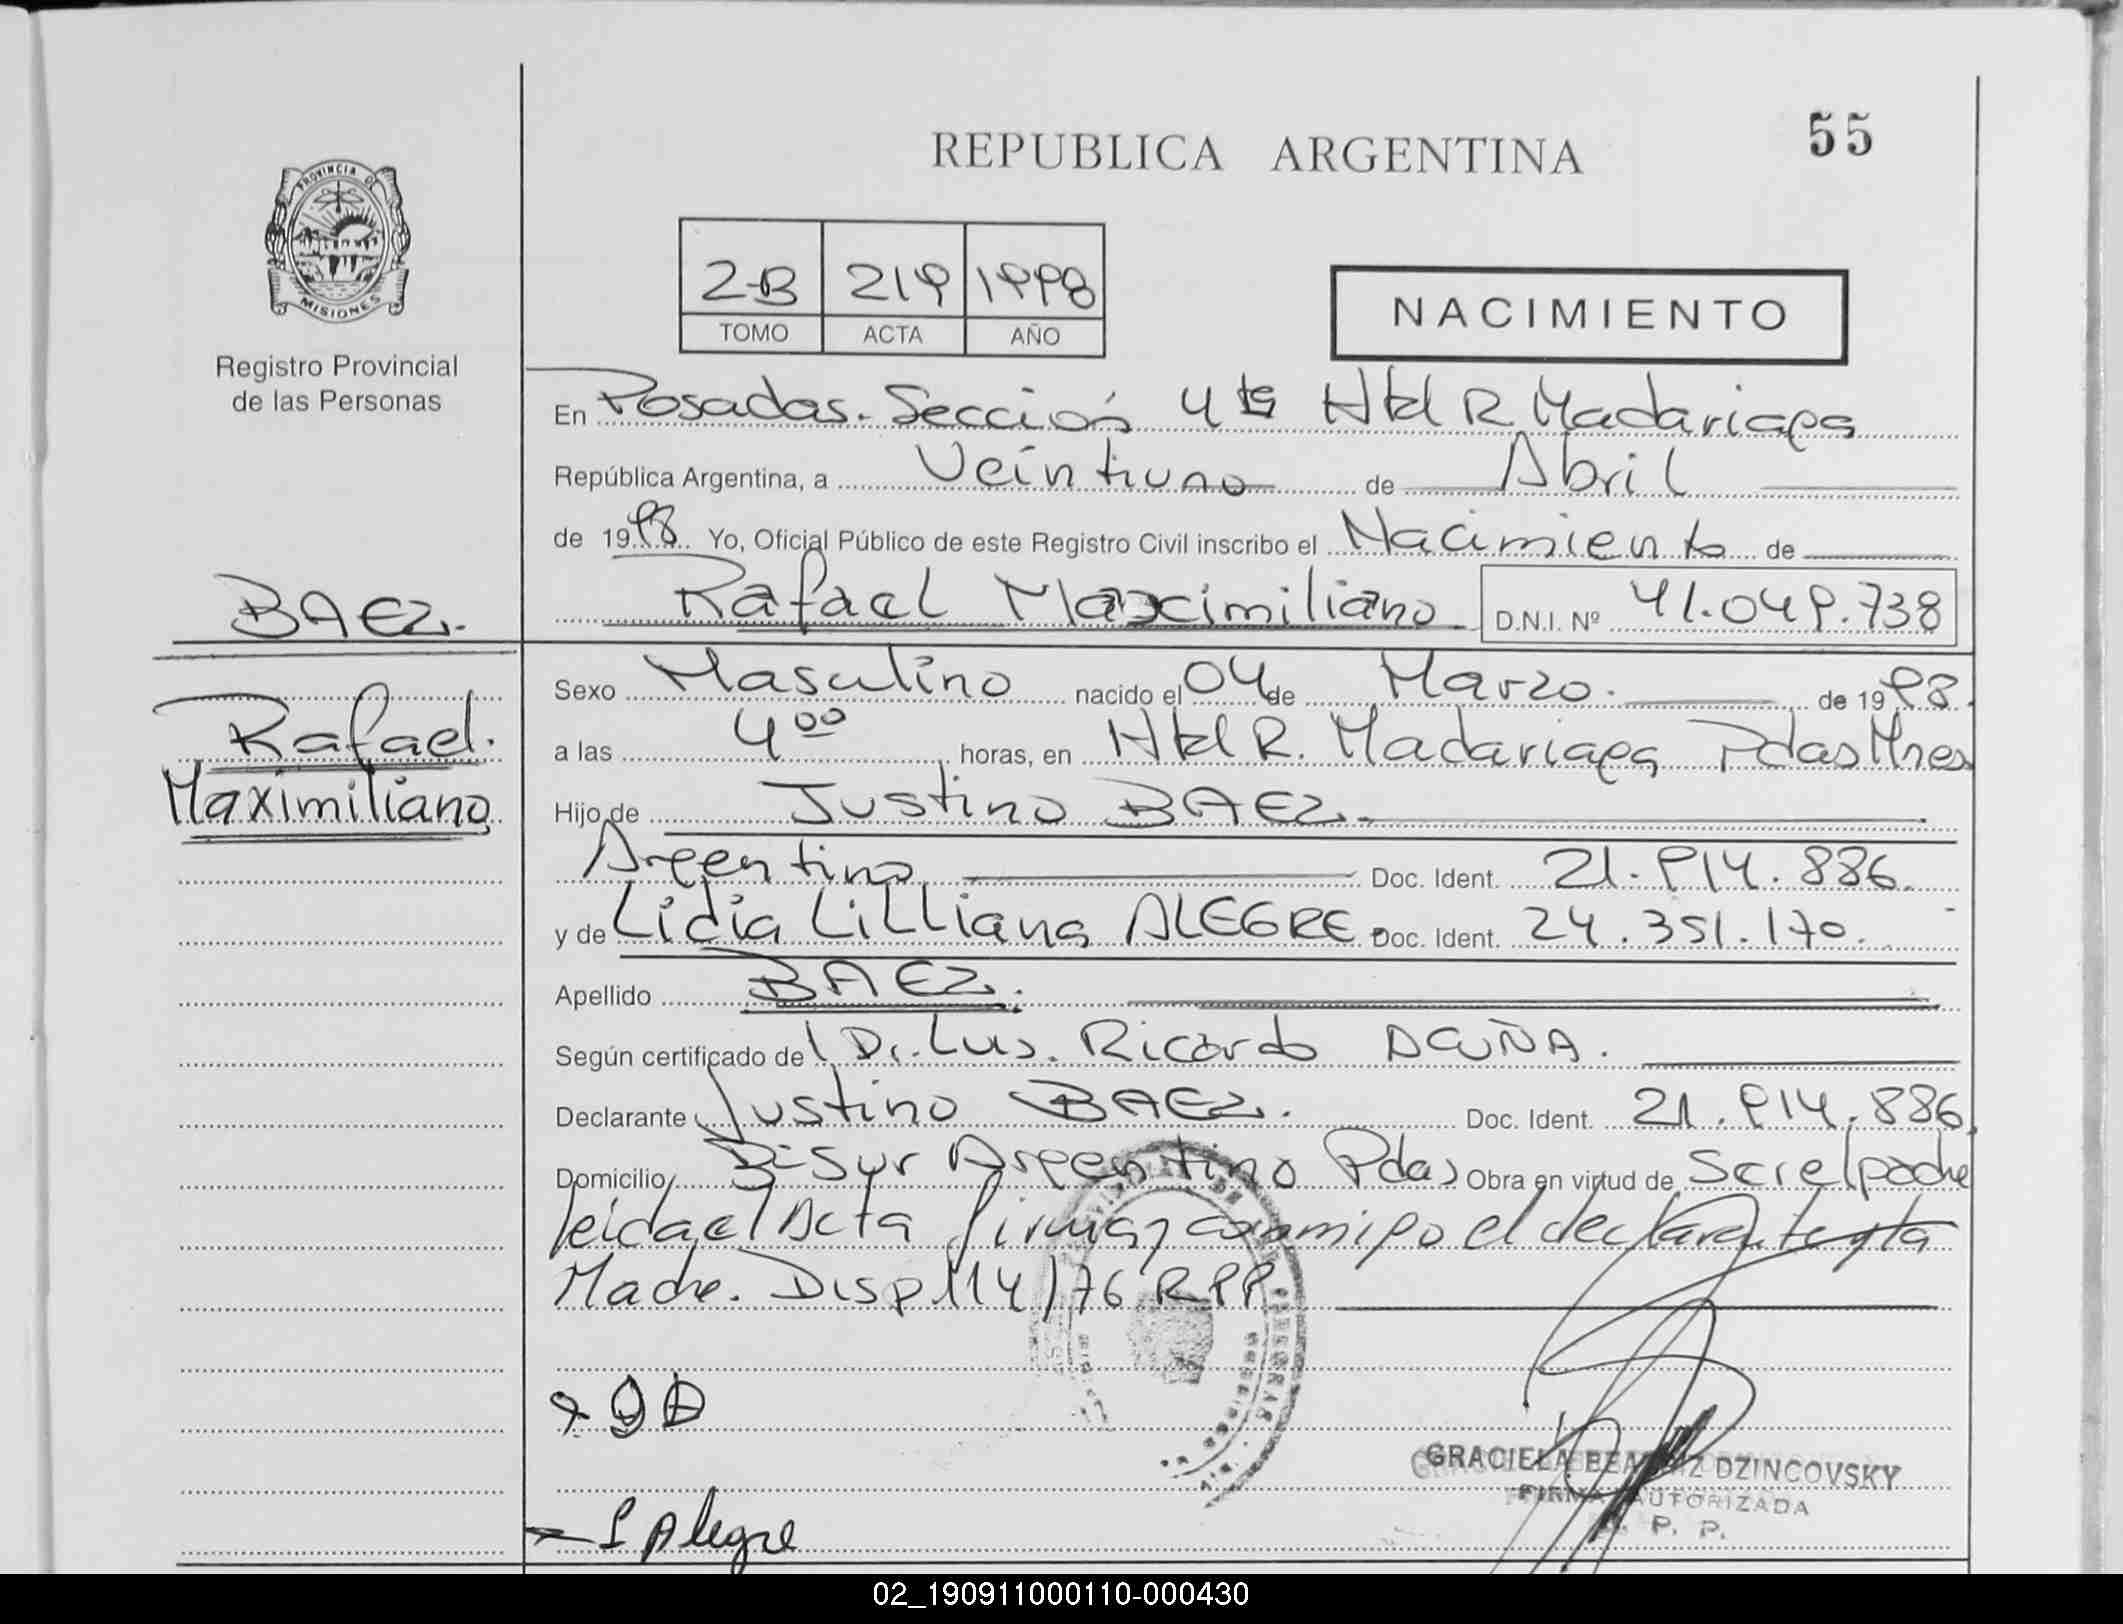 55
REPUBLICA ARGENTINA
PROVINCIA DE
MISIONES
Registro Provincial
de las Personas
2-B 219 1998
TOMO ACTA AÑO
NACIMIENTO
En Posadas. Sección 4ta Htal R Madariaga
República Argentina, a Veintiuno de Abril
de 1998 Yo, Oficial Público de este Registro Civil inscribo el Nacimiento de
BAEZ.
Rafael Maximiliano D.N.I. Nº 41.049.738
Sexo Masculino nacido el 04 de Marzo. de 1998.
Rafael.
Maximiliano
a las 4 00 horas, en Htal R. Madariaga Pdas Mnes
Hijo de Justino BAEZ.
Argentino Doc. Ident. 21.914.886.
y de Lidia Lilliana ALEGRE. Doc. Ident. 24.351.170.
Apellido BAEZ.
Según certificado de Dr. Luis. Ricardo ACUÑA.
Declarante Justino BAEZ. Doc. Ident. 21.914.886
Domicilio Bº Sur Argentino Pdas Obra en virtud de Ser el padre
leida el Acta firman conmigo el declarante y la
Madre. Disp 114/76 RPP
L Alegre
GRACIELA BEATRIZ DZINCOVSKY
FIRMA AUTORIZADA
R. P. P.
02_190911000110-000430